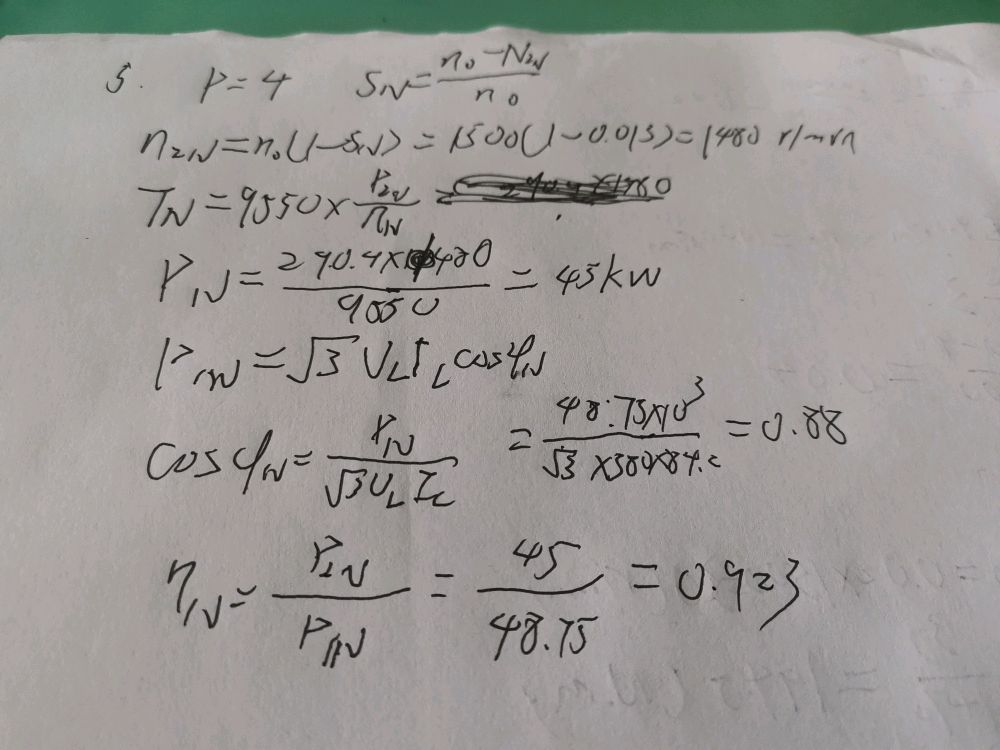 5. P=4 SN=(n0-N2N)/n0
n2N=n0(1-SN)=1500(1-0.013)=1480 r/min
TN=9550×P2N/nN=
P1N=290.4×1480/9550=45kW
P1N=√3ULILcosφN
cosφN=PIN/√3ULIL =48.75×10³/√3×380×84.2=0.88
ηIN=P2N/P1N=45/48.75=0.923